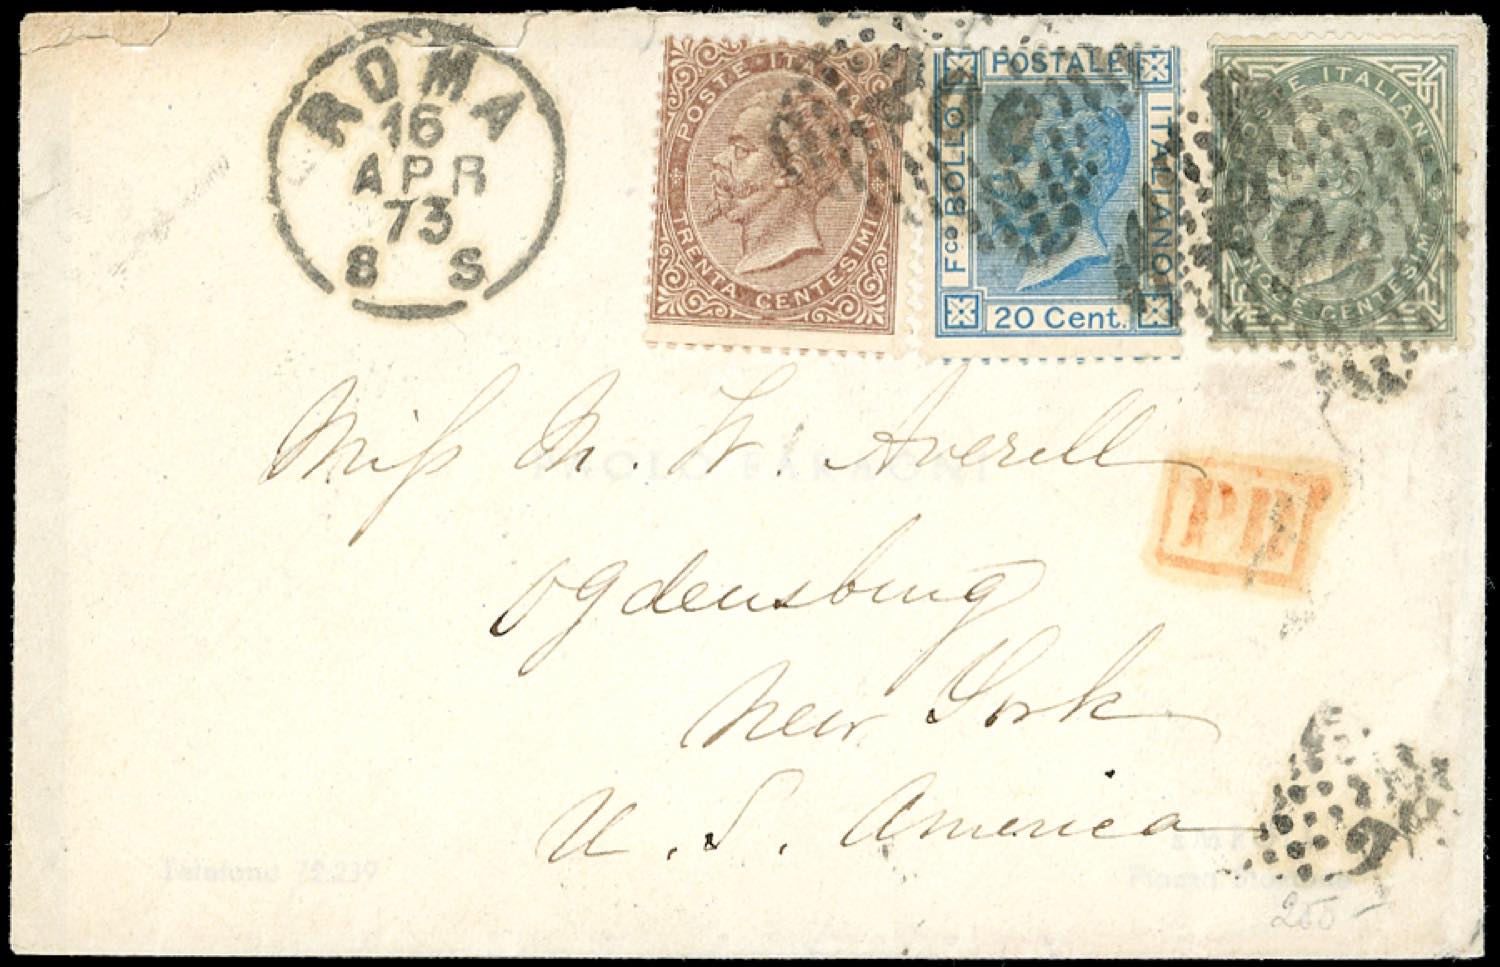 ROMA
16
APR
73
8 S
POSTE ITALIANE
TRENTA CENTESIMI
POSTALE
Fco BOLLO
ITALIANO
20 Cent.
POSTE ITALIANE
CENTESIMI
Miss M. W. Averell
PD
Ogdensburg
New York
U. S. America
Telefono 72.239
2
250